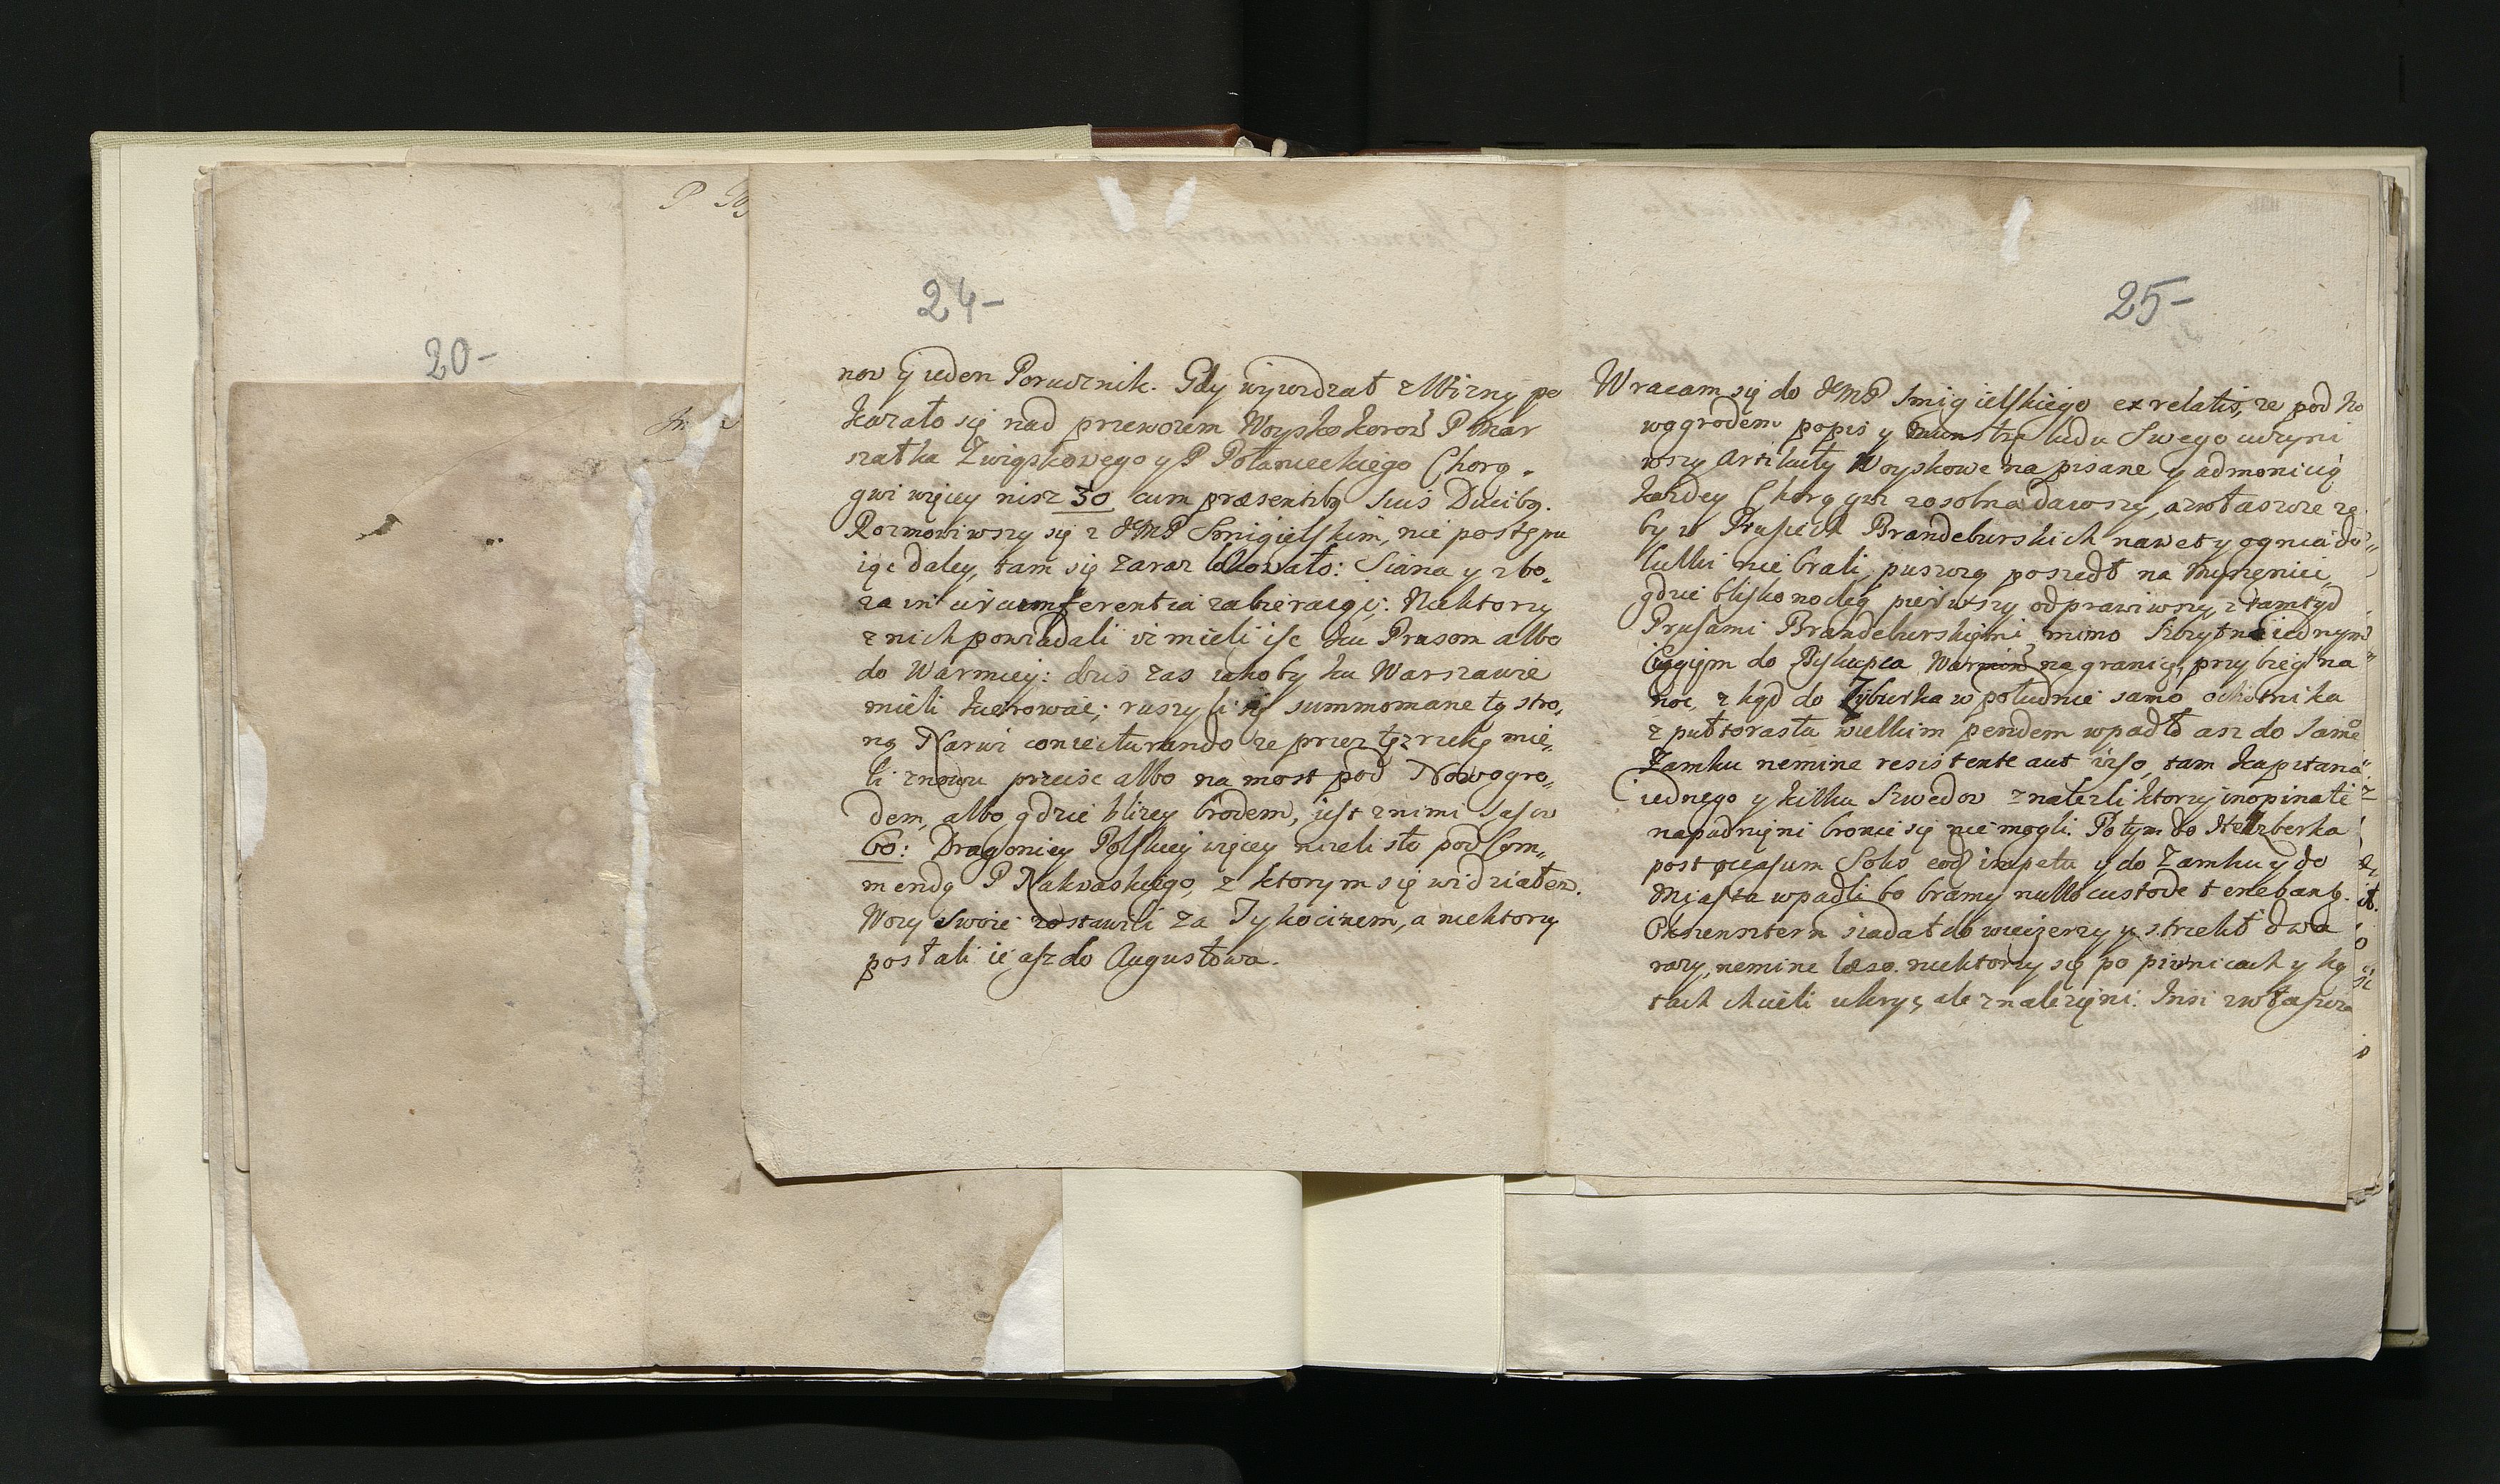 20-
24-
now y ieden Porucznik. Gdy wyiezdzał z Wizny po
kazało się nad przewozem Woysko Koroñ P Mar
szałka Zwiąskowego y P Połanieckiego Chorą„
gwi więcey nisz 30 cum præsentibꝫ suis Ducibꝫ.
Rozmowiwszy się z JMP Smigielskim, nie postępu
iąc daley, tam się zaraz lokowało: Siana y zbo„
za in circumferentia zabieraiąc: Niektorzy
z nich powiadali iz mieli isc ku Prusom albo
do Warmiey: dzis zas iakoby ku Warszawie
mieli kierowac; ruszyli się summo mane tą stro„
ną Narwi coniecturando ze przez tęz rzekę mie„
li znowu przeisc albo na most pod Nowogro„
dem, albo gdzie blizey brodem, iest z nimi Sasow
60: Dragoniey Polskiey więcey nizeli sto pod Com„
mendą P Nakwaskiego, z ktorym się widziałem.
Wozy swoie zostawili za Tykocinem, a niektorzy
posłali ie asz do Augustowa.
25-
Wracam się do JMP Smigielskiego ex relatis, ze pod No
wogrodem popis y munstrę ludu Swego uczyni
wszy Artikuły Woyskowe na pisane y admonicią
kazdey Chorągwi zosobna dawszy, a zwłaszcze ze
by w Prusiech Brandeburskich nawet y ognia do„
lulki nie brali, puszczą poszedł na Myszeniec,
gdzie blisko nocleg pierwszy odprawiwszy, z tamtyd
Prusami Brandeburskiemi mimo Sczytna iednym
Ciągiem do Byskupca Warmiñ na granicę, przybiegł na
noc, z kąd do Zyburka w południe samo ochotnika
z pułtorasta wielkim pendem wpadł asz do Same
Zamku nemine resistente aut viso, tam Kapitana
iednego y kilku Szwedow znalezli ktorzy inopinate
napadnięni bronic się nie mogli. Potym do Helzberka
post occasum Solis eod impetu y do Zamku y do
Miasta wpadli bo bramy nullo custode tenebantꝫ.
Oxiensztern siadał do wieczerzy y strzelił dwa
razy, nemine læso. niektorzy się po piwnicach y ką
tach chcieli ukryc, ale znalezięni. Insi zwłaszcza